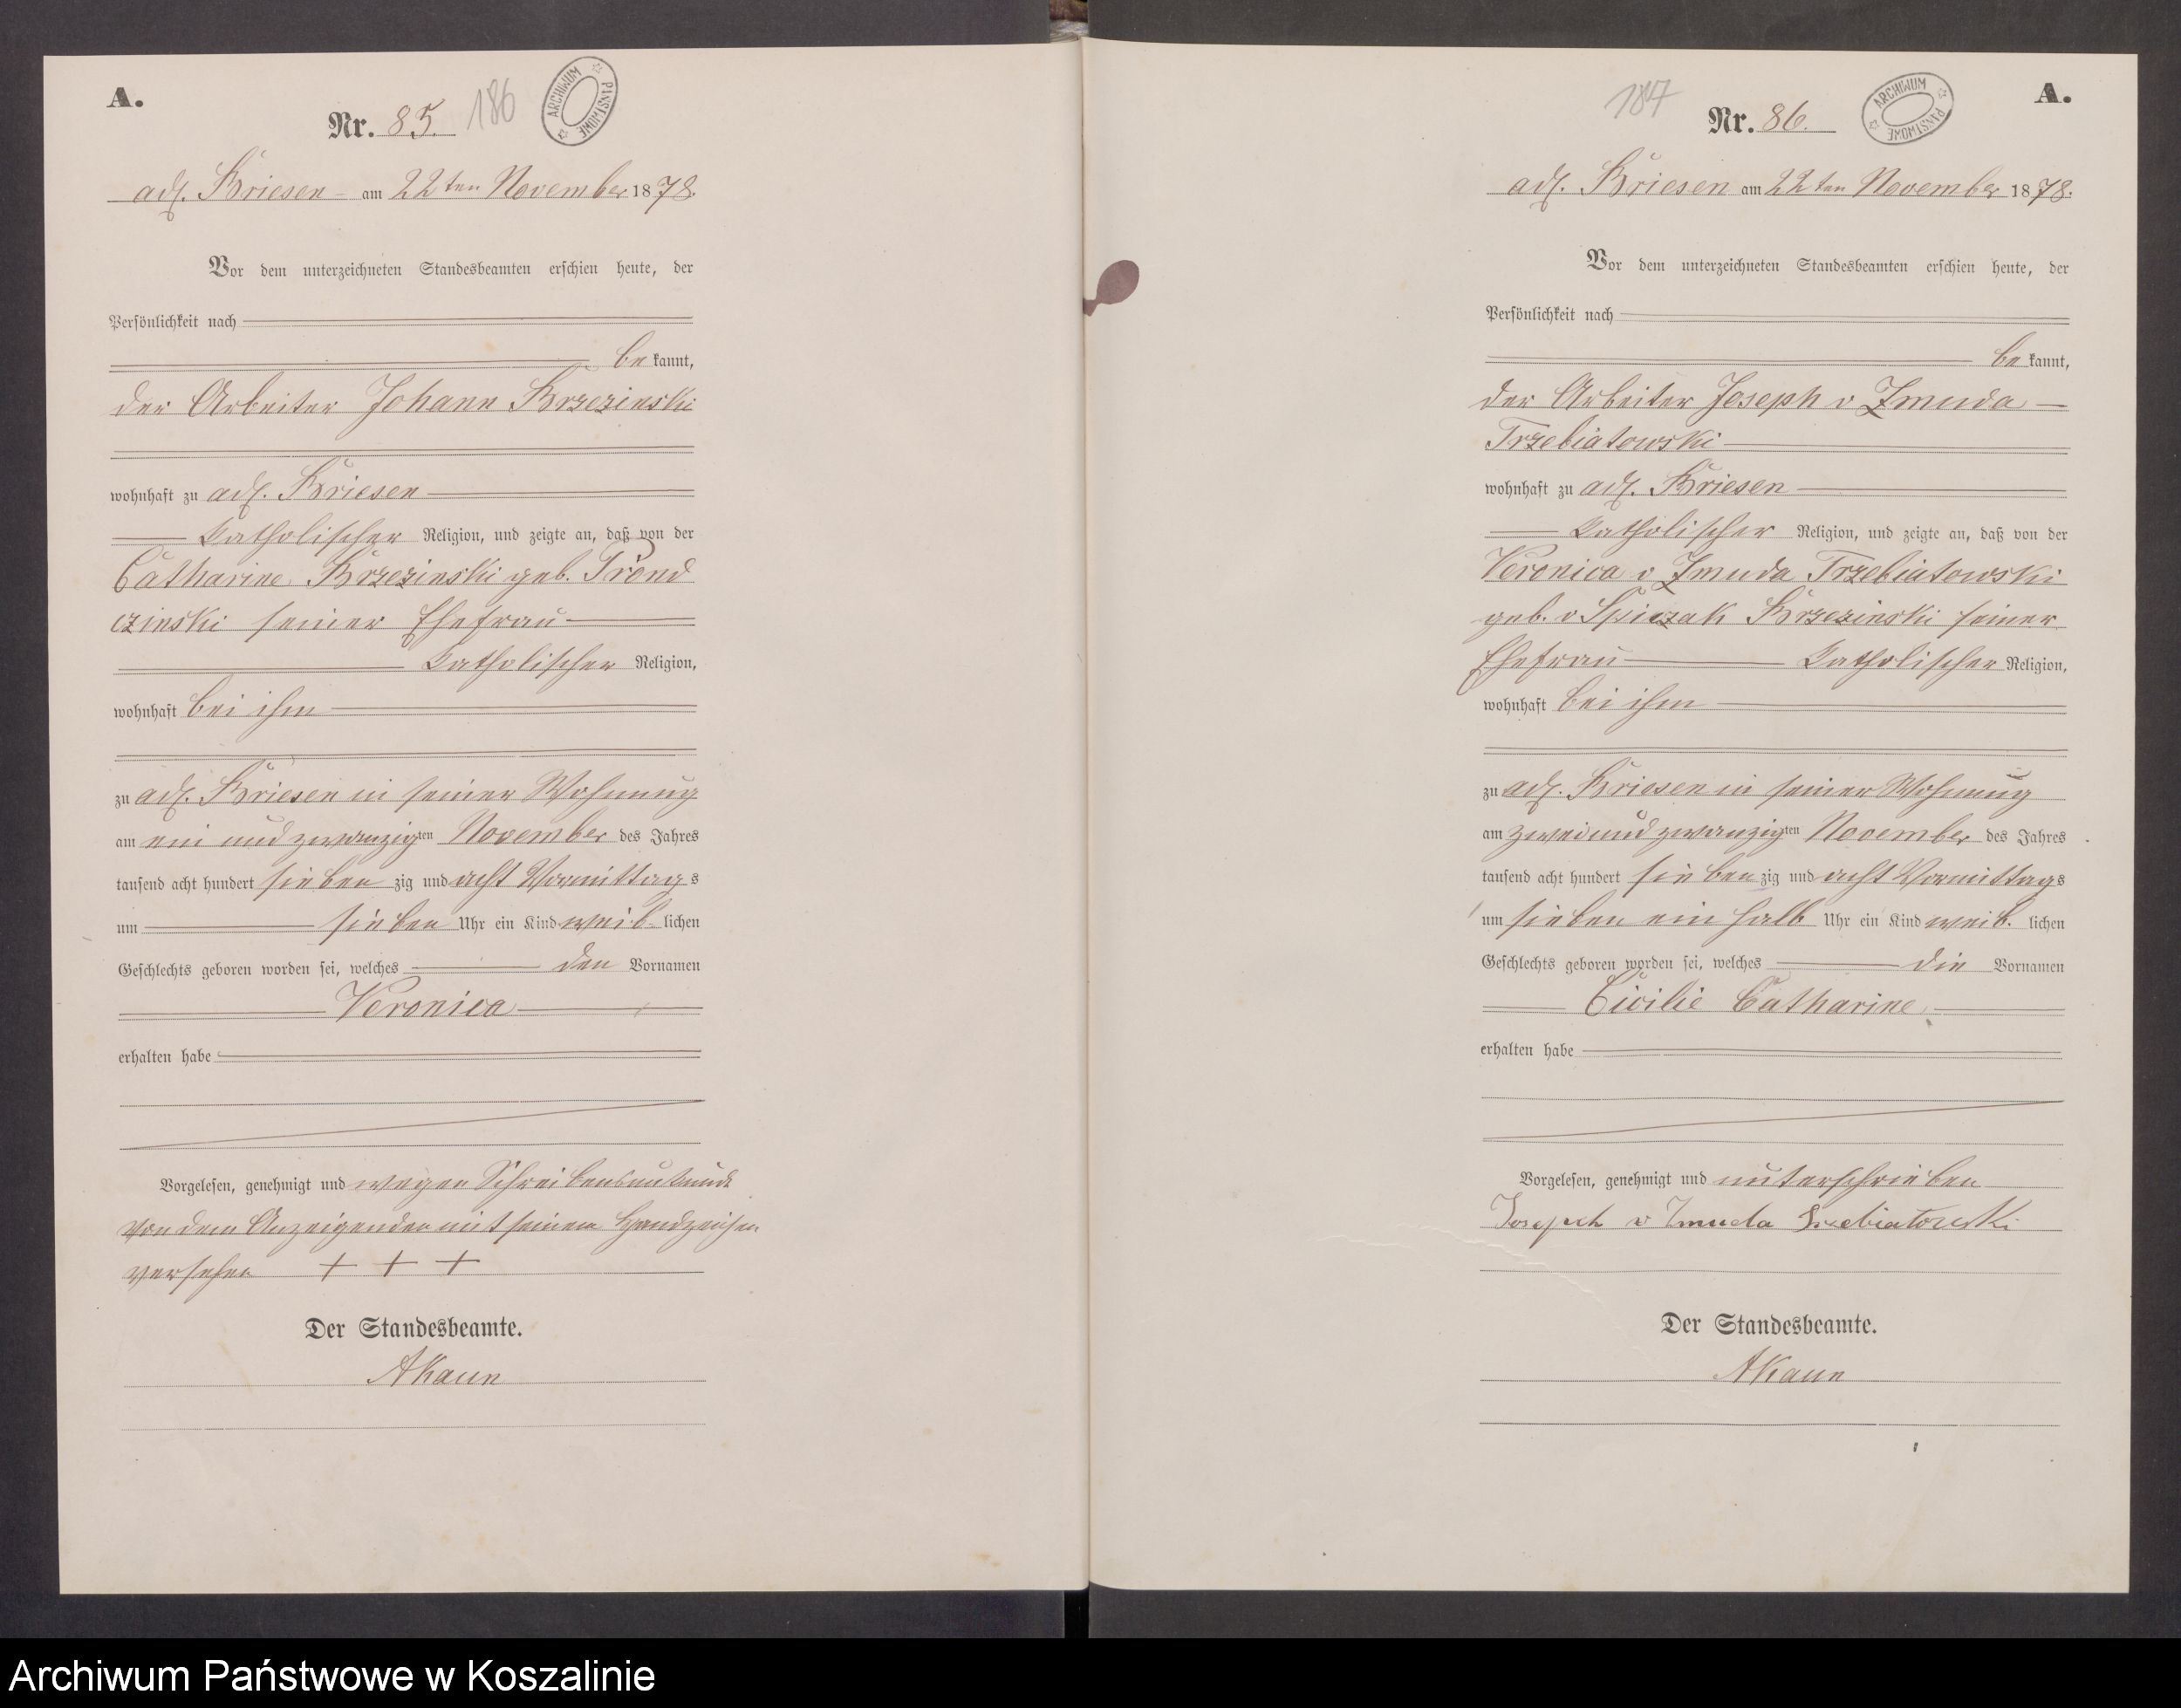 A.
Nr. 85.
186
ARCHIWUM PAŃSTWOWE
adl. Briesen am 22ten November 1878.
Vor dem unterzeichneten Standesbeamten erschien heute, der
Persönlichkeit nach
be kannt,
der Arbeiter Johann Brzezinski
wohnhaft zu adl. Briesen
katholischer Religion, und zeigte an, daß von der
Catharine Brzezinski geb. Prond
czinski seiner Ehefrau
katholischer Religion,
wohnhaft bei ihm
zu adl. Briesen in seiner Wohnung
am ein und zwanzigten November des Jahres
tausend acht hundert sieben zig und acht Vormittags
um sieben Uhr ein Kind weib. lichen
Geschlechts geboren worden sei, welches den Vornamen
Veronica
erhalten habe
Vorgelesen, genehmigt und wegen Schreibensunkunde
von dem Anzeigenden mit seinem Handzeichen
versehen + + +
Der Standesbeamte.
AKaun
187
Nr. 86.
ARCHIWUM PAŃSTWOWE
A.
adl. Briesen am 22ten November 1878.
Vor dem unterzeichneten Standesbeamten erschien heute, der
Persönlichkeit nach
be kannt,
der Arbeiter Joseph v Zmuda
Trzebiatowski
wohnhaft zu adl. Briesen
katholischer Religion, und zeigte an, daß von der
Veronica v Zmuda Trzebiatowski
geb. v Spiczak Brzezinski seiner
Ehefrau katholischer Religion,
wohnhaft bei ihm
zu adl. Briesen in seiner Wohnung
am zwei und zwanzigten November des Jahres
tausend acht hundert sieben zig und acht Vormittags
um sieben ein halb Uhr ein Kind weib. lichen
Geschlechts geboren worden sei, welches die Vornamen
Cicilie Catharine
erhalten habe
Vorgelesen, genehmigt und unterschrieben
v Zmuda Trzebiatowski
Der Standesbeamte.
AKaun
Archiwum Państwowe w Koszalinie